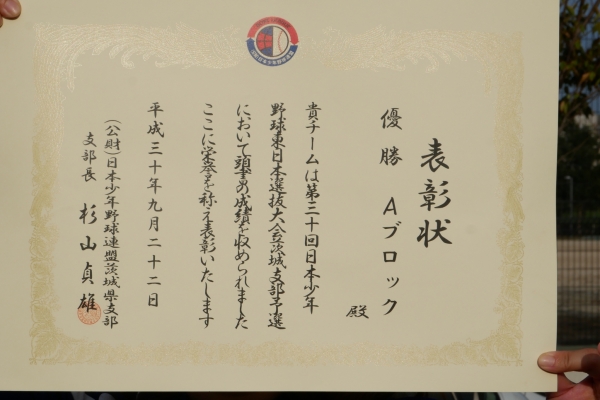 表彰状
優勝 Aブロック
殿
貴チームは第三十回日本少年
野球東日本選抜大会茨城支部予選
において頭書の成績を収められました
ここに栄誉を称え表彰いたします
平成三十年九月二十二日
(公財)日本少年野球連盟茨城県支部
支部長 杉山貞雄